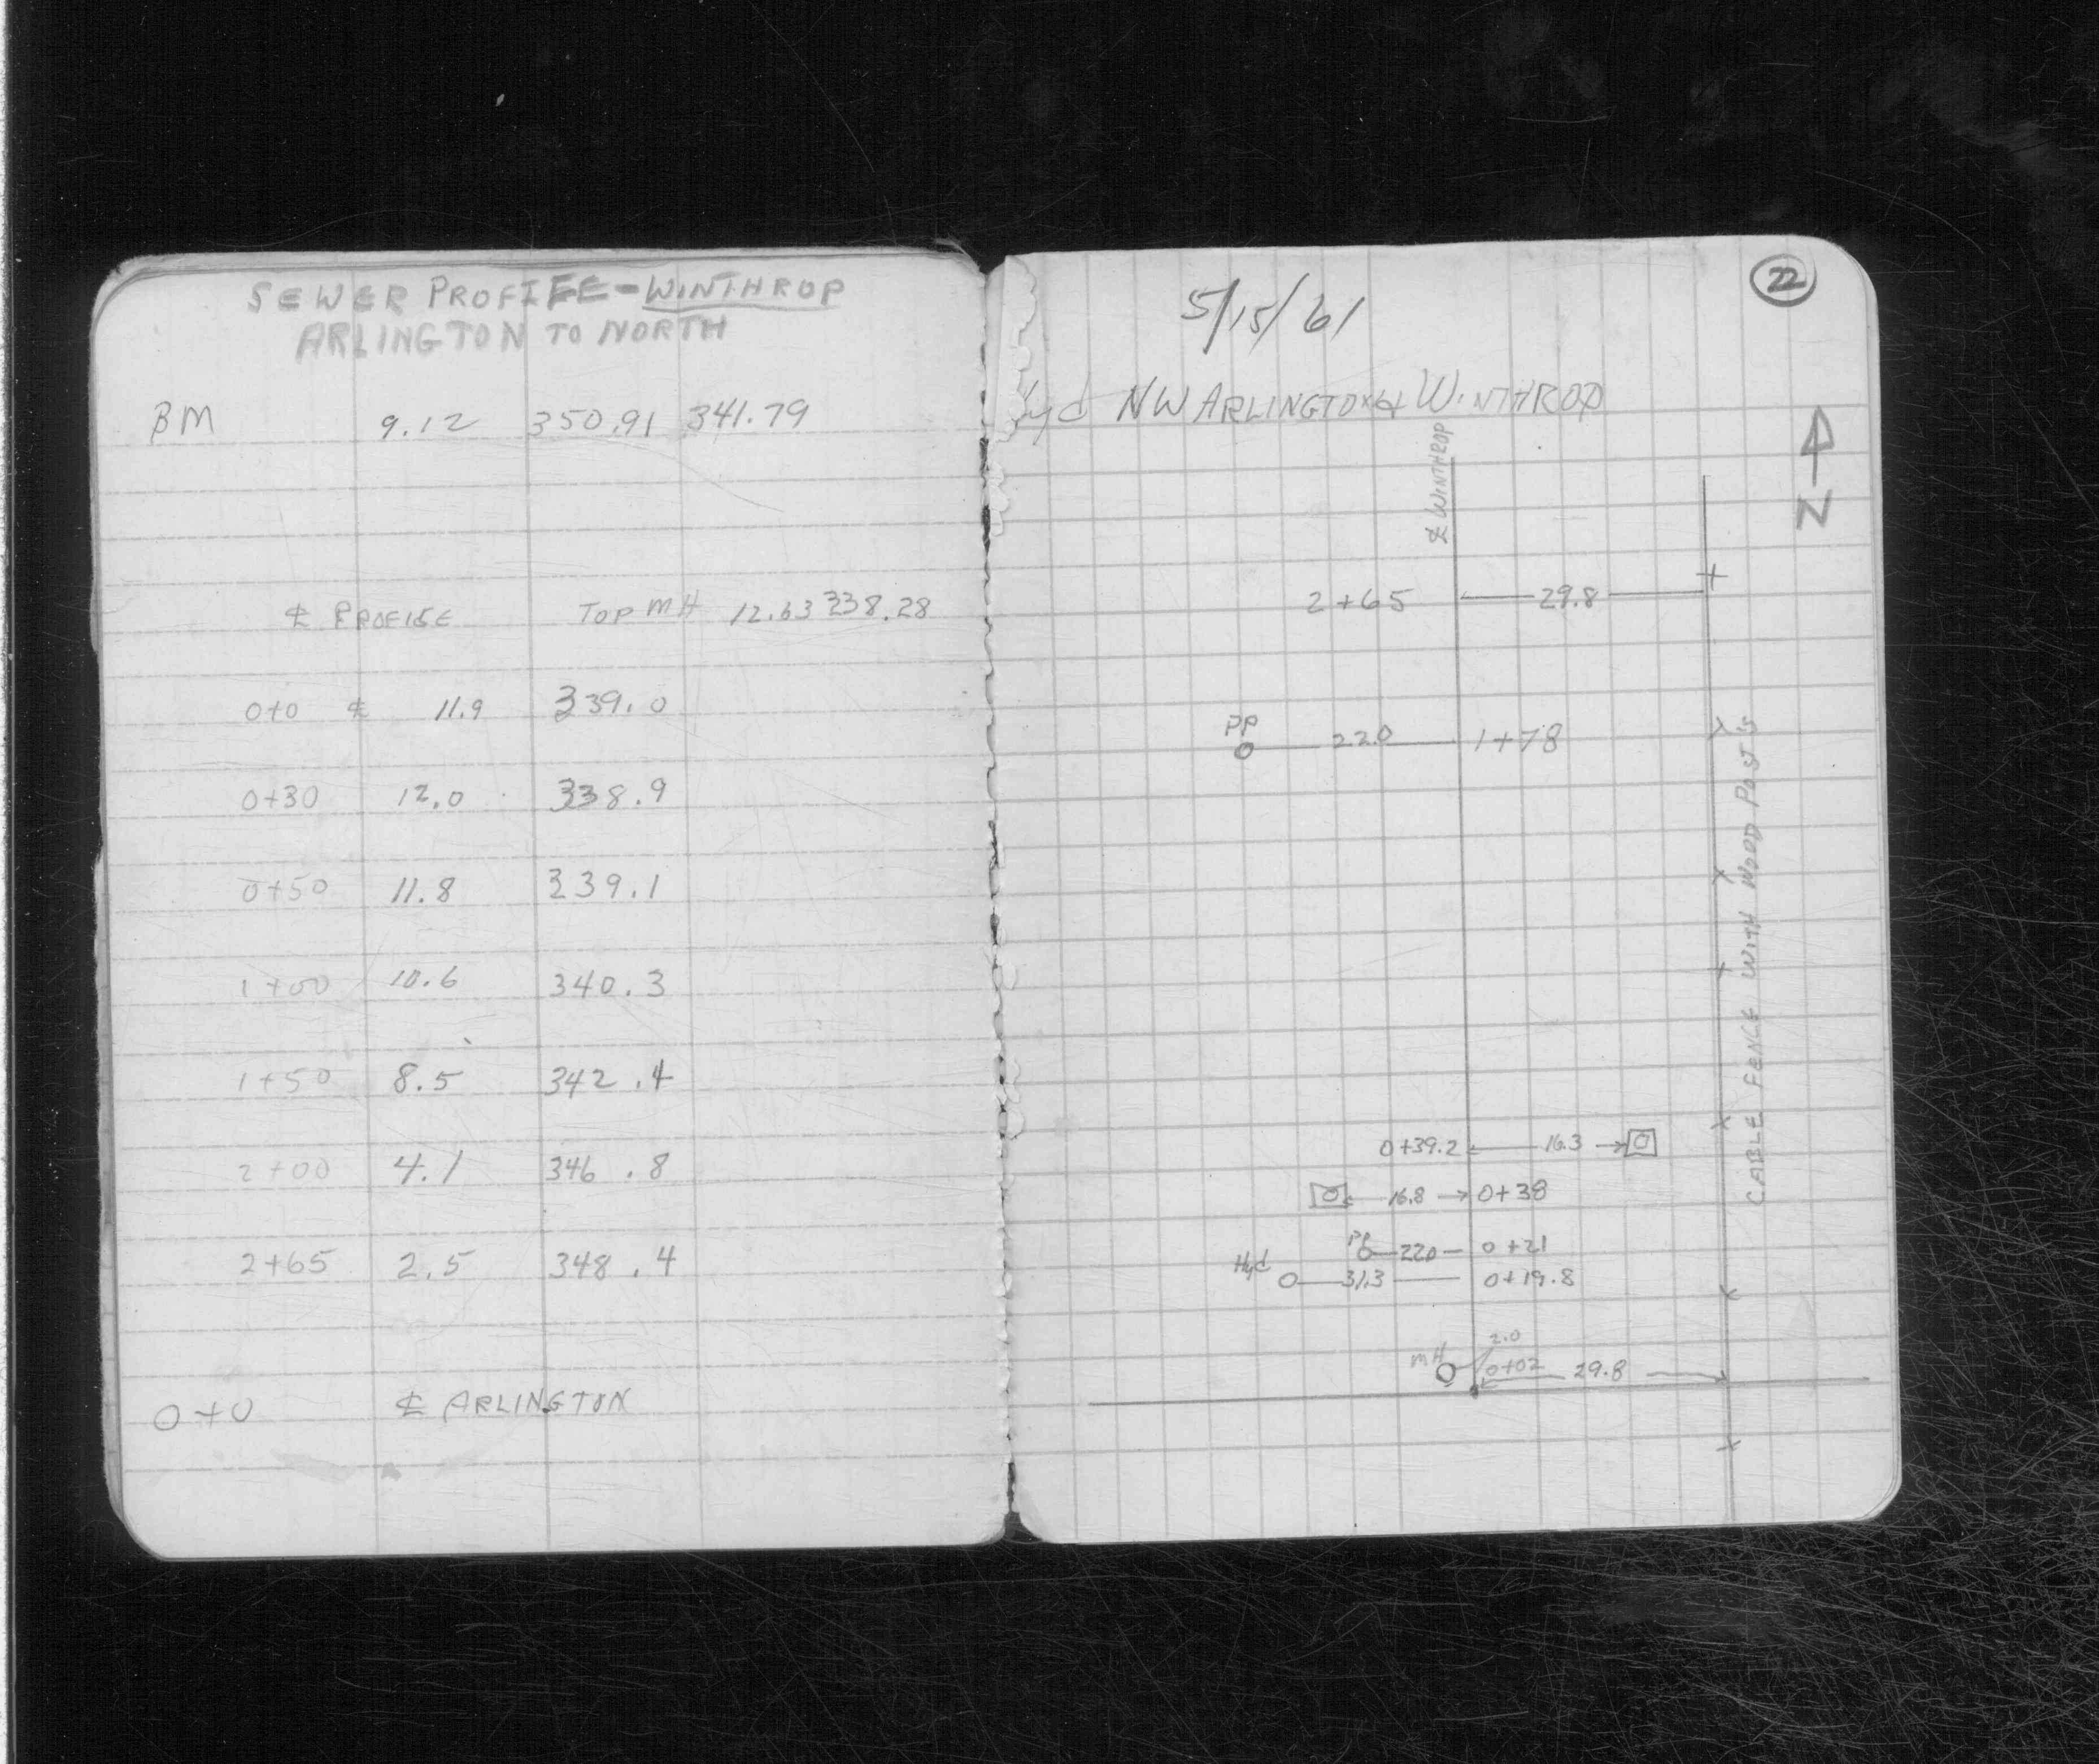 SEWER PROFILE - WINTHROP
ARLINGTON TO NORTH
BM 9.12 350.91 341.79
℄ PROFILE TOP MH 12.63 338.28
0+0 ℄ 11.9 339.0
0+30 12.0 338.9
0+50 11.8 339.1
1+00 10.6 340.3
1+50 8.5 342.4
2+00 4.1 346.8
2+65 2.5 348.4
0+0 ℄ ARLINGTON
22
5/15/61
Hyd NW ARLINGTON & WINTHROP
℄ WINTHROP
N
2+65 29.8
PP
22.0 1+78
CABLE FENCE WITH WOOD POST'S
0+39.2 16.3
16.8 0+38
PP 22.0 0+21
Hyd 31.3 0+19.8
2.0
MH 0+02 29.8